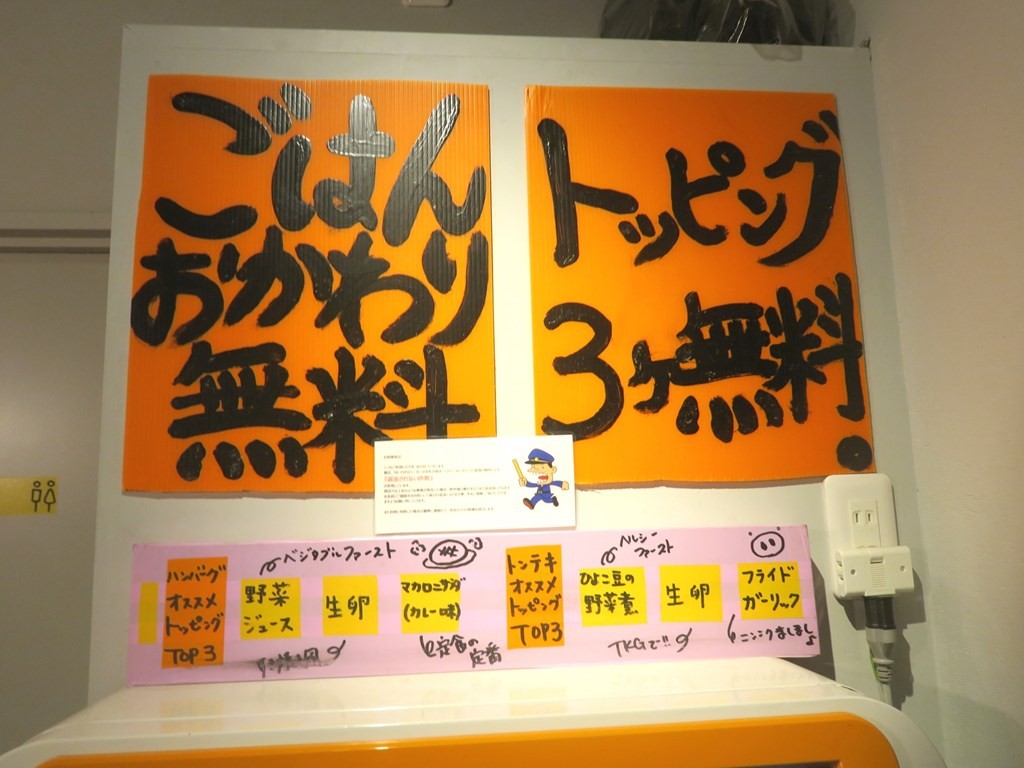 ごはん
おかわり
無料
トッピング
3ヶ無料!
ハンバーグ
オススメ
トッピング
TOP3
ベジタブルファースト
野菜
ジュース
生卵
マカロニサラダ
(カレー味)
定食の
定番
トンテキ
オススメ
トッピング
TOP3
ヘルシー
ファースト
ひよこ豆の
野菜煮
生卵
TKGで!!
フライド
ガーリック
ニンニクましまし♪